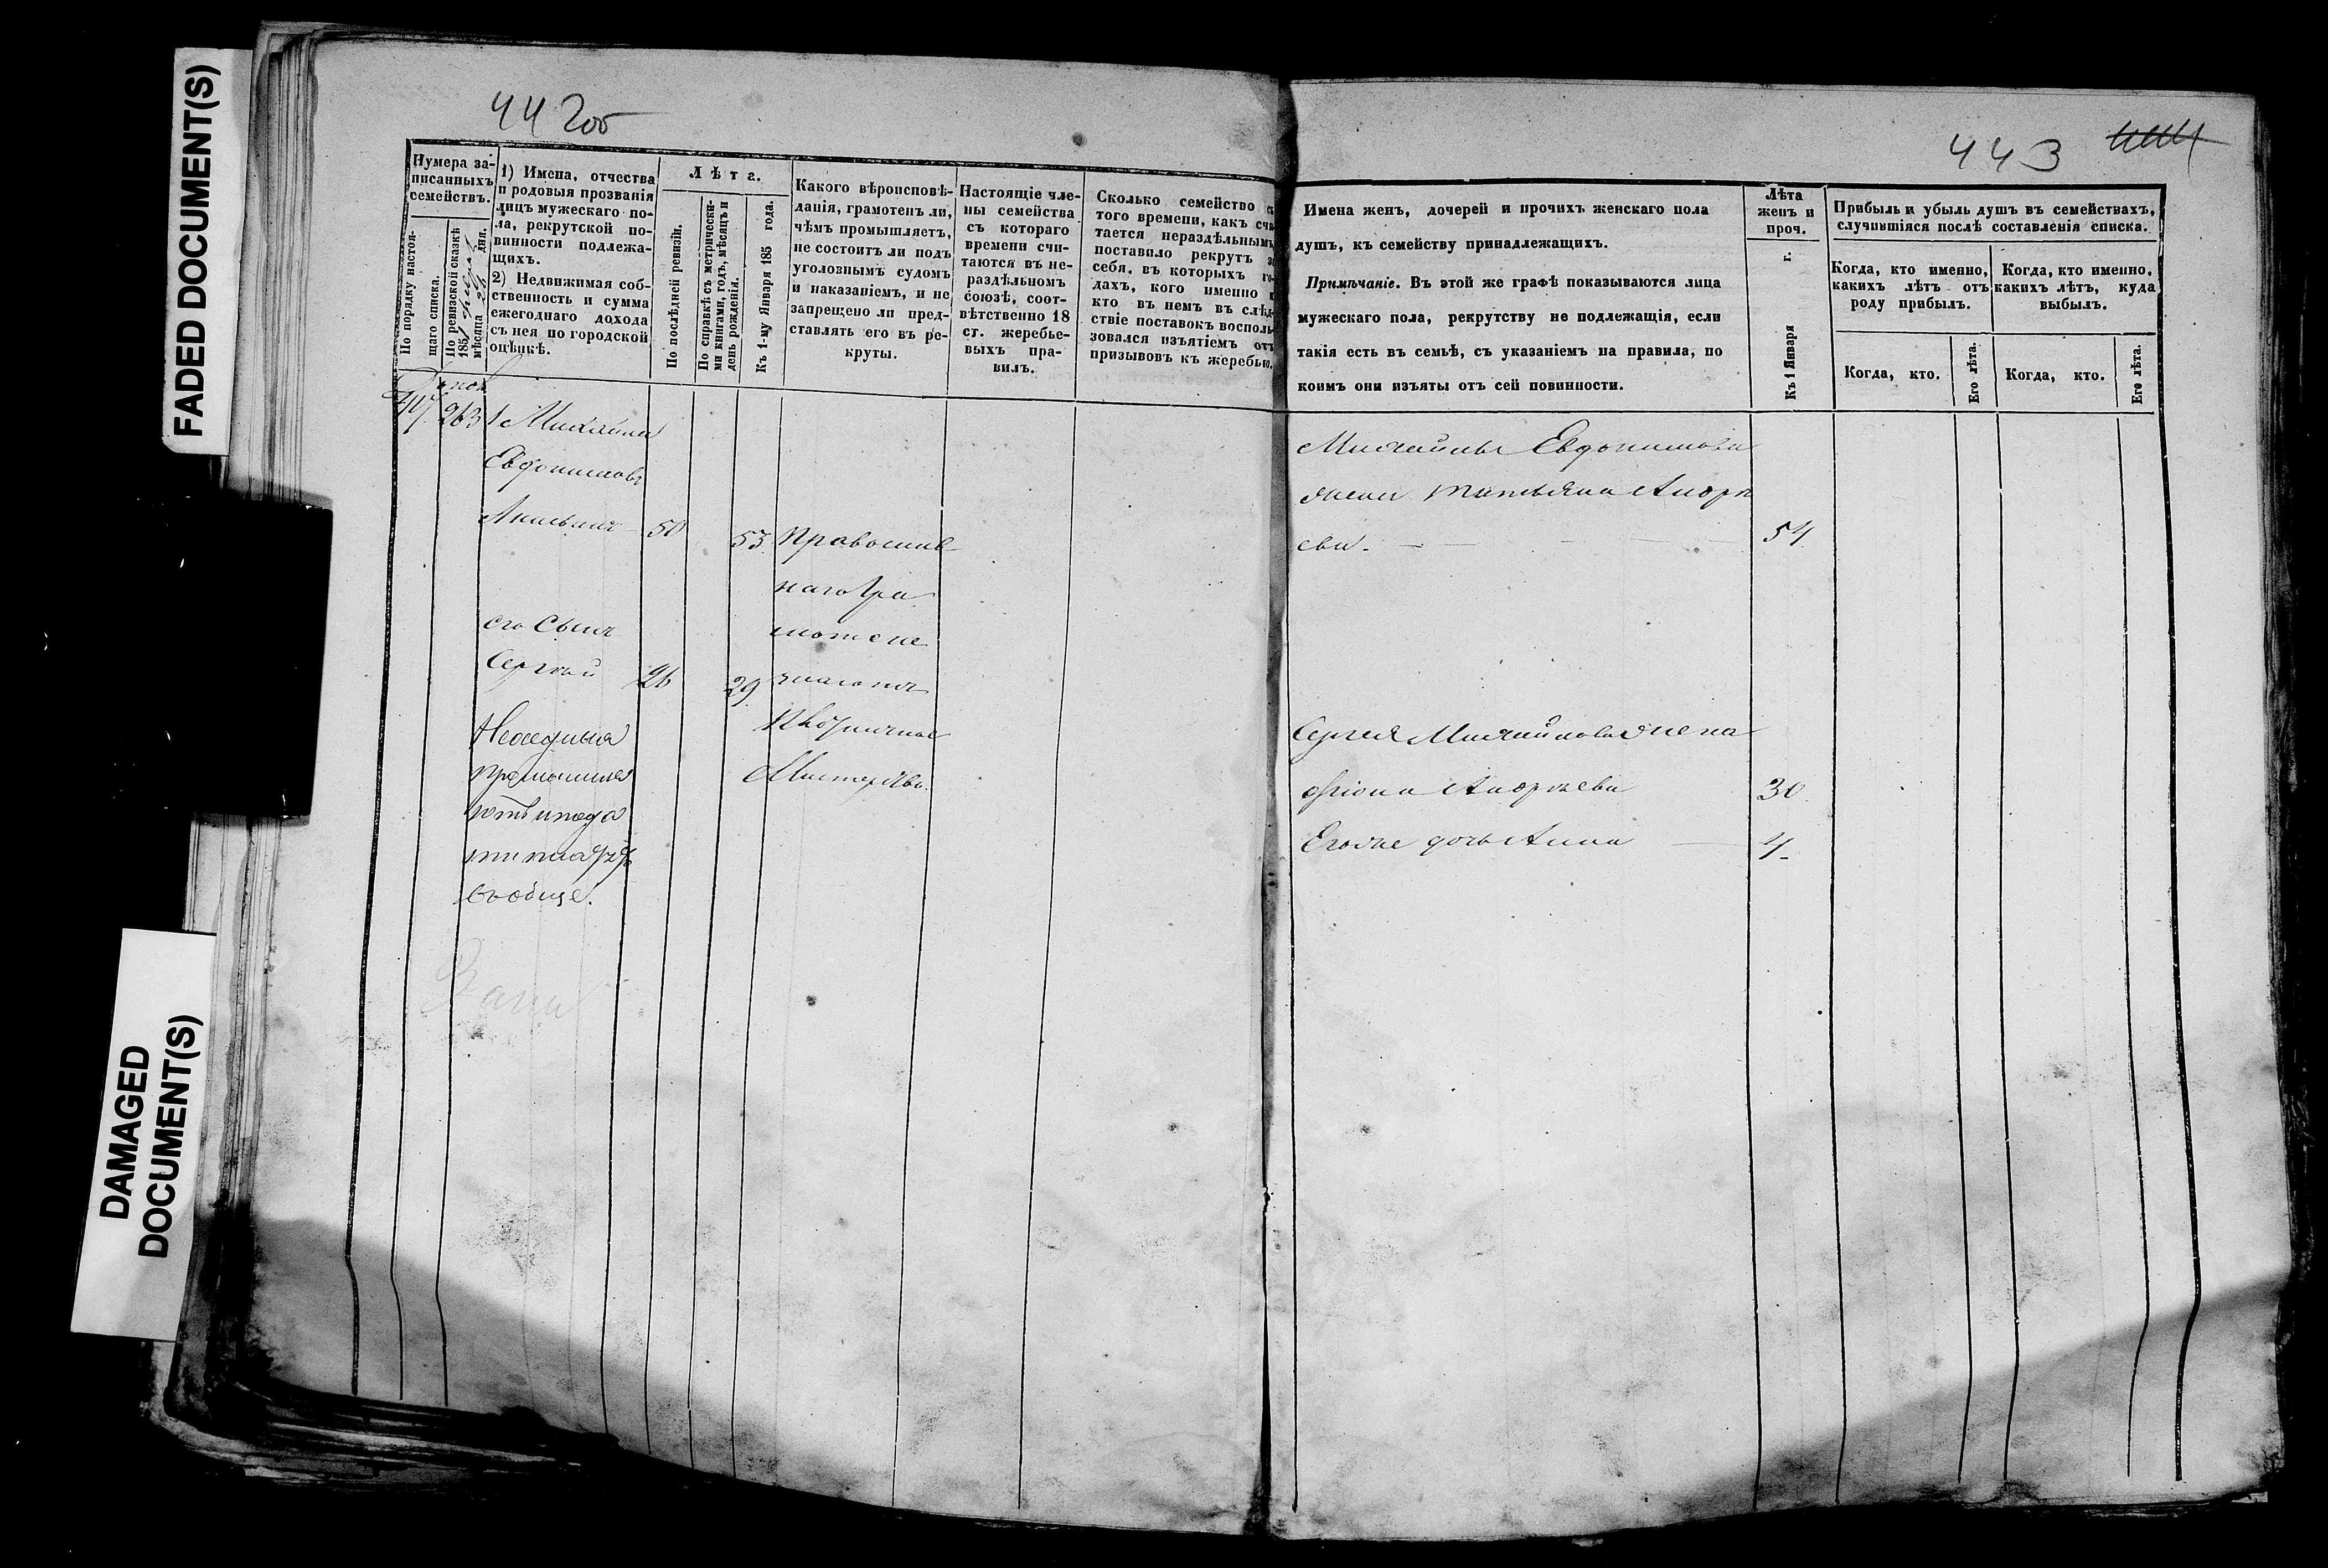 FADED DOCUMENT(S)
DAMAGED
DOCUMENT(S)
442об
Нумера за-
писанныхъ
семействъ.
По порядку настоя-
щаго списка.
По ревизской сказкѣ
185
мѣсяца дня.
1) Имена, отчества
и родовыя прозванія
лицъ мужескаго по-
ла, рекрутской по-
винности подлежа-
щихъ.
2) Недвижимая соб-
ственность и сумма
ежегоднаго дохода
съ нея по городской
оцѣнкѣ.
Лѣта.
По послѣдней ревизіи.
По справкѣ съ метрически-
ми книгами, годъ, мѣсяцъ и
день рожденія.
Къ 1-му Января 185 года.
Какого вѣроисповѣ-
данія, грамотенъ ли,
чѣмъ промышляетъ,
не состоитъ ли подъ
уголовнымъ судомъ
и наказаніемъ, и не
запрещено ли пред-
ставлять его въ ре-
круты.
Настоящіе чле-
ны семейства
съ котораго
времени счи-
таются въ не-
раздѣльномъ
союзѣ, соот-
вѣтственно 18
ст. жеребье-
выхъ пра-
вилъ.
Сколько семейство съ
того времени, какъ счи-
тается нераздѣльнымъ,
поставило рекрутъ за
себя, въ которыхъ го-
дахъ, кого именно и
кто въ немъ въ слѣд-
ствіе поставокъ восполь-
зовался изъятіемъ отъ
призывовъ къ жеребью.
263
Михайла
Евдокимовъ
50
53. Православ
наго Гра
моте не
его Сынъ
Сергѣй 26
29 знаютъ
Кузничное
Мастерство.
вообще.
443
444
Имена женъ, дочерей и прочихъ женскаго пола
душъ, къ семейству принадлежащихъ.
Примѣчаніе. Въ этой же графѣ показываются лица
мужескаго пола, рекрутству не подлежащія, если
такія есть въ семьѣ, съ указаніемъ на правила, по
коимъ они изъяты отъ сей повинности.
Лѣта
женъ и
проч.
Къ 1 Января г.
Прибыль и убыль душъ въ семействахъ,
случившіяся послѣ составленія списка.
Когда, кто именно,
какихъ лѣтъ отъ
роду прибылъ.
Когда, кто именно,
какихъ лѣтъ, куда
выбылъ.
Когда, кто.
Его лѣта.
Когда, кто.
Его лѣта.
Михайлы Евдокимова
жена Татьяна Андре
ева. 54.
Сергея Михайлова жена
Андреева 30.
Егоже дочь Анна 4.